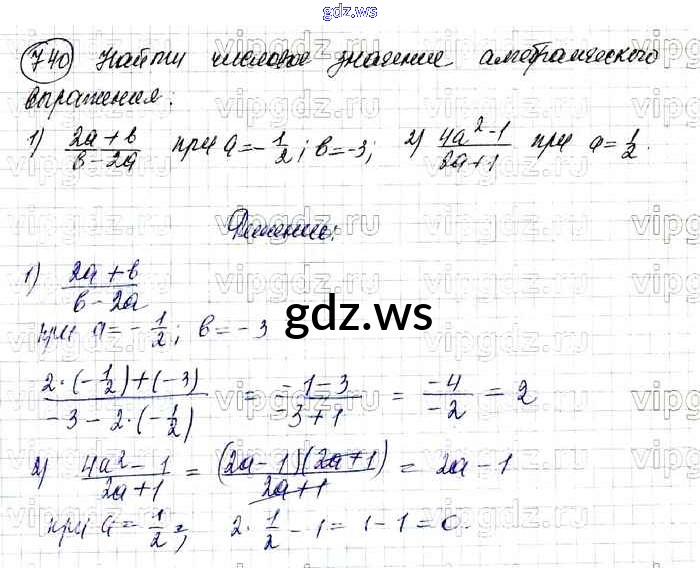 gdz.ws
740 Найти числовое значение алгебраического
выражения:
1) (2a + b)/(b - 2a) при a = -1/2; b = -3; 2) (4a² - 1)/(2a + 1) при a = 1/2.
Решение:
1) (2a + b)/(b - 2a)
при a = -1/2; b = -3
gdz.ws
(2·(-1/2) + (-3))/(-3 - 2·(-1/2)) = (-1 - 3)/(-3 + 1) = (-4)/(-2) = 2
2) (4a² - 1)/(2a + 1) = ((2a - 1)(2a + 1))/(2a + 1) = 2a - 1
при a = 1/2; 2·1/2 - 1 = 1 - 1 = 0.
gdz.ws
vipgdz.ru